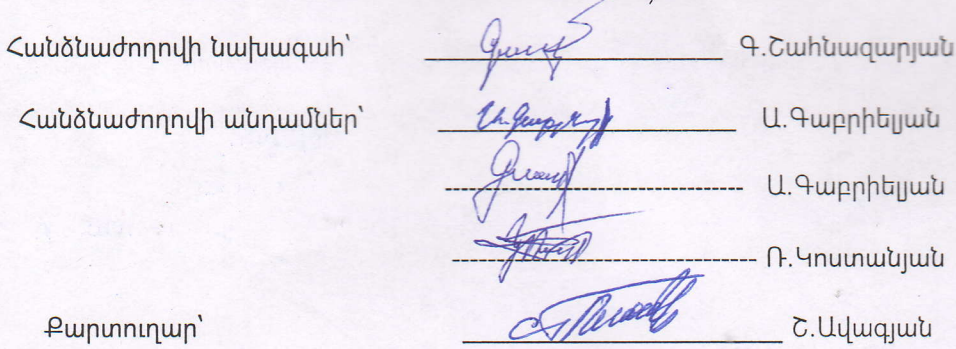 Հանձնաժողովի նախագահ՝ Գ.Շահնազարյան
Հանձնաժողովի անդամներ՝ Ա.Գաբրիելյան
Ա.Գաբրիելյան
Ռ.Կոստանյան
Քարտուղար՝ Շ.Ավագյան